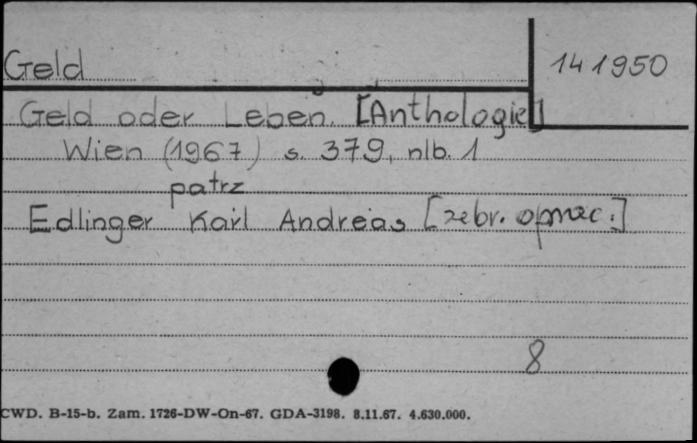 Geld
141950
Geld oder Leben. [Anthologie]
Wien (1967) s. 379, nlb. 1
patrz
Edlinger Karl Andreas [zebr. oprac.]
8
CWD. B-15-b. Zam. 1726-DW-On-67. GDA-3198. 8.11.67. 4.630.000.